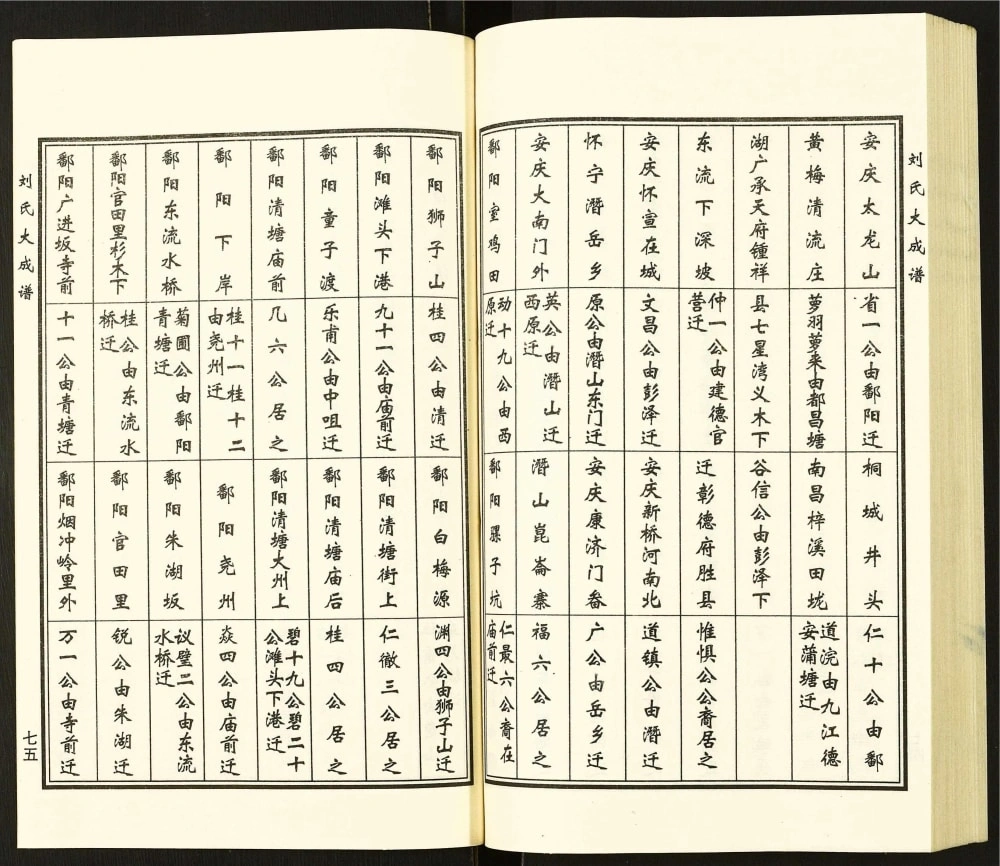 刘氏大成谱
安庆太龙山
省一公由鄱阳迁
桐城井头
仁十公由鄱
黄梅清流庄
萝羽萝来由都昌塘
南昌梓溪田垅
道浣由九江德
安蒲塘迁
湖广承天府锺祥
县七星湾义木下
谷信公由彭泽下
东流下深坡
仲一公由建德官
营迁
迁彰德府胜县
惟惧公公裔居之
安庆怀宣在城
文昌公由彭泽迁
安庆新桥河南北
道镇公由潜迁
怀宁潜岳乡
原公由潜山东门迁
安庆康济门畚
广公由岳乡迁
安庆大南门外
英公由潜山迁
西原迁
潜山崑崙寨
福六公居之
鄱阳室鸡田
动十九公由西
原迁
鄱阳骡子坑
仁最六公裔在
庙前迁
鄱阳狮子山
桂四公由清迁
鄱阳白梅源
渊四公由狮子山迁
鄱阳滩头下港
九十一公由庙前迁
鄱阳清塘街上
仁徹三公居之
鄱阳童子渡
乐甫公由中咀迁
鄱阳清塘庙后
桂四公居之
鄱阳清塘庙前
几六公居之
鄱阳清塘大州上
碧十九公碧二十
公滩头下港迁
鄱阳下岸
桂十一桂十二
由尧州迁
鄱阳尧州
焱四公由庙前迁
鄱阳东流水桥
菊圃公由鄱阳
青塘迁
鄱阳朱湖坂
议璧二公由东流
水桥迁
鄱阳官田里杉木下
桂公由东流水
桥迁
鄱阳官田里
锐公由朱湖迁
鄱阳广进坂寺前
十一公由青塘迁
鄱阳烟冲岭里外
万一公由寺前迁
刘氏大成谱
七五